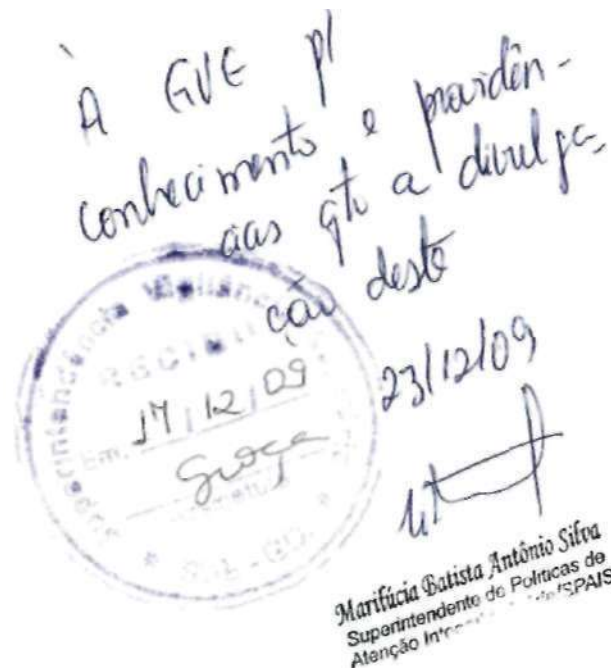 À GVE p/
conhecimento e providên-
cias qto a divulga-
ção deste
23/12/09
Superintendência Vigilância
RECIBI
Em, 17/12/09
Marilúcia Batista Antônio Silva
Superintendente de Políticas de
Atenção /SPAIS